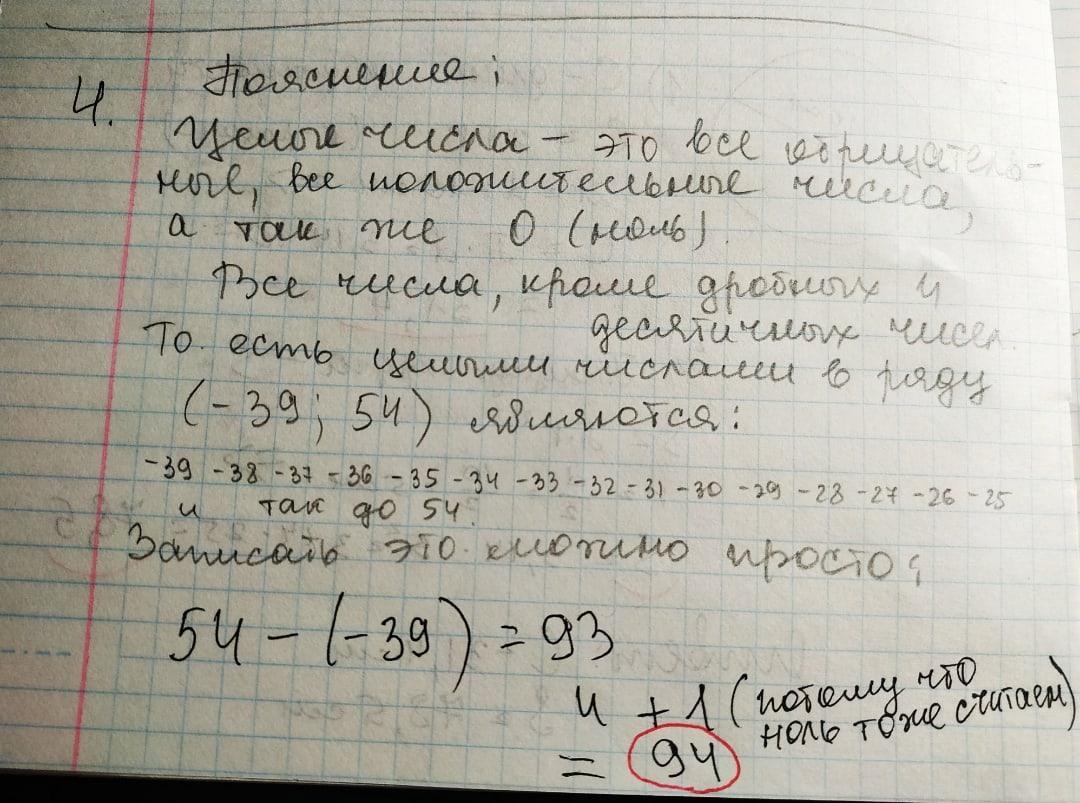 4. Пояснение;
Целые числа – это все отрицатель-
ные, все положительные числа,
а так же 0 (ноль).
Все числа, кроме дробных и
десятичных чисел.
То есть целыми числами в ряду
(-39; 54) являются:
-39 -38 -37 -36 -35 -34 -33 -32 -31 -30 -29 -28 -27 -26 -25
и так до 54.
Записать это можно просто;
54 - (-39) = 93
и + 1 (потому что
ноль тоже считаем)
= 94